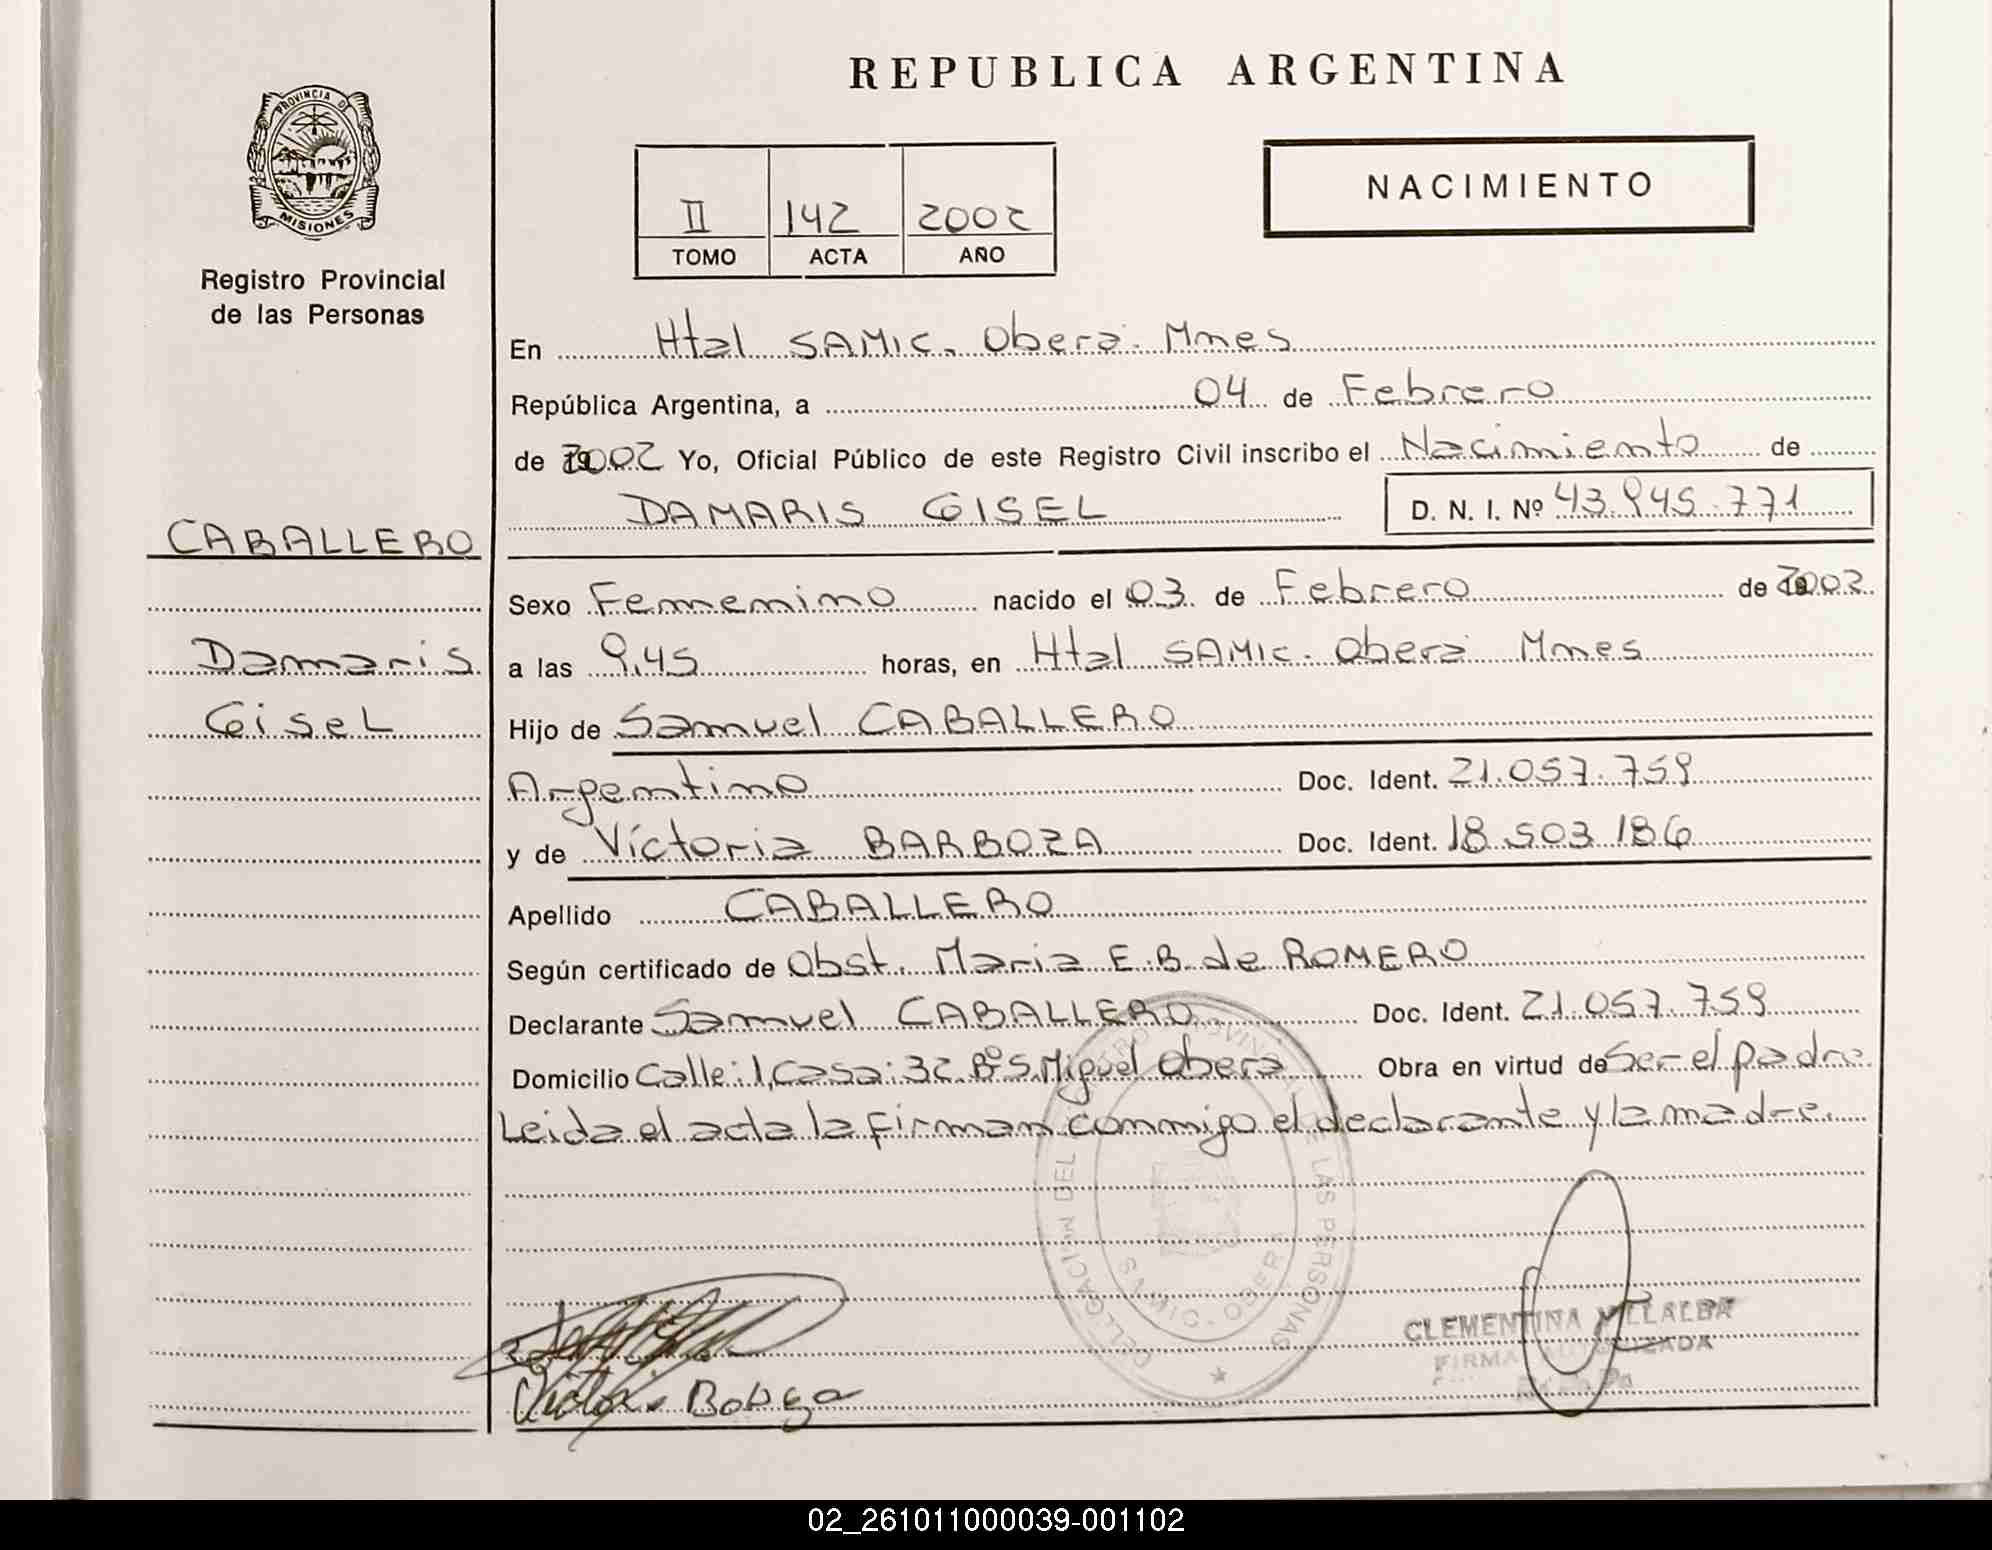 REPUBLICA ARGENTINA
PROVINCIA DE
MISIONES
Registro Provincial
de las Personas
II 142 2002
TOMO ACTA AÑO
NACIMIENTO
En Htal SAMIC. Oberá. Mnes
República Argentina, a 04 de Febrero
de 2002 Yo, Oficial Público de este Registro Civil inscribo el Nacimiento de
DAMARIS GISEL D. N. I. Nº 43.945.771
CABALLERO
Damaris
Gisel
Sexo Femenino nacido el 03 de Febrero de 2002
a las 9.45 horas, en Htal SAMIC. Oberá Mnes
Hijo de Samuel CABALLERO
Argentino Doc. Ident. 21.057.759
y de Victoria BARBOZA Doc. Ident. 18.503.186
Apellido CABALLERO
Según certificado de Obst. Maria E.B. de ROMERO
Declarante Samuel CABALLERO Doc. Ident. 21.057.759
Domicilio Calle: 1, Casa: 32 Bº S. Miguel Oberá Obra en virtud de Ser el padre
Leida el acta la firman conmigo el declarante y la madre.
DELEGACION DEL LAS PERSONAS
SAMIC. OBERA
CLEMENTINA VILLALBA
FIRMA AUTORIZADA
02_261011000039-001102